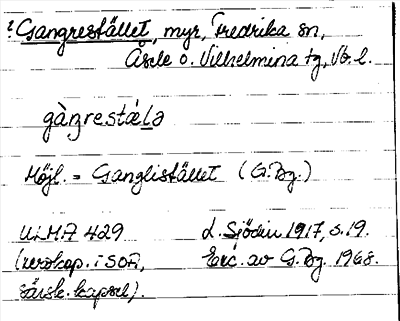 ? Gangrestället, myr, Fredrika sn,
Åsele o. Vilhelmina tg, Vb. l.
gàŋrestǽl̲ə
Möjl. = Ganglistället (G. Bg.)
ULMA 429 L. Sjödin 1917, s. 19.
(xerokop. i SOA, Exc. av G. Bg. 1968.
särsk. kapsel).